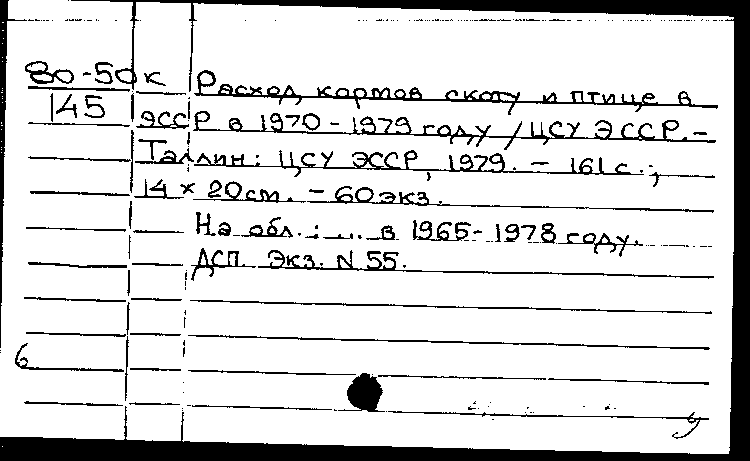 80-50к Расход кормов скоту и птице в
145 ЭССР в 1970-1979 году / ЦСУ ЭССР.-
Таллин: ЦСУ ЭССР, 1979. - 161с.;
14 × 20см. - 60экз.
На обл.: ... в 1965-1978 году.
ДСП. Экз. N 55.
6